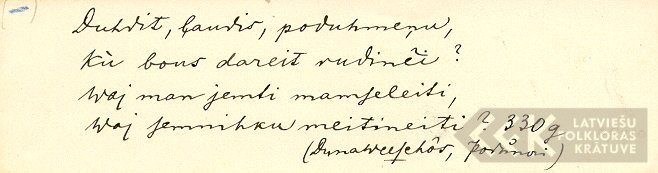 Duhdit, ļaudis, poduhmeņu,
Kù bous dareit rudinči?
Waj man jemti mamseleiti,
Waj semnihku meitineiti? 330 g
(Dynaweeschôs, Podůnai)
LATVIEŠU
FOLKLORAS
KRĀTUVE